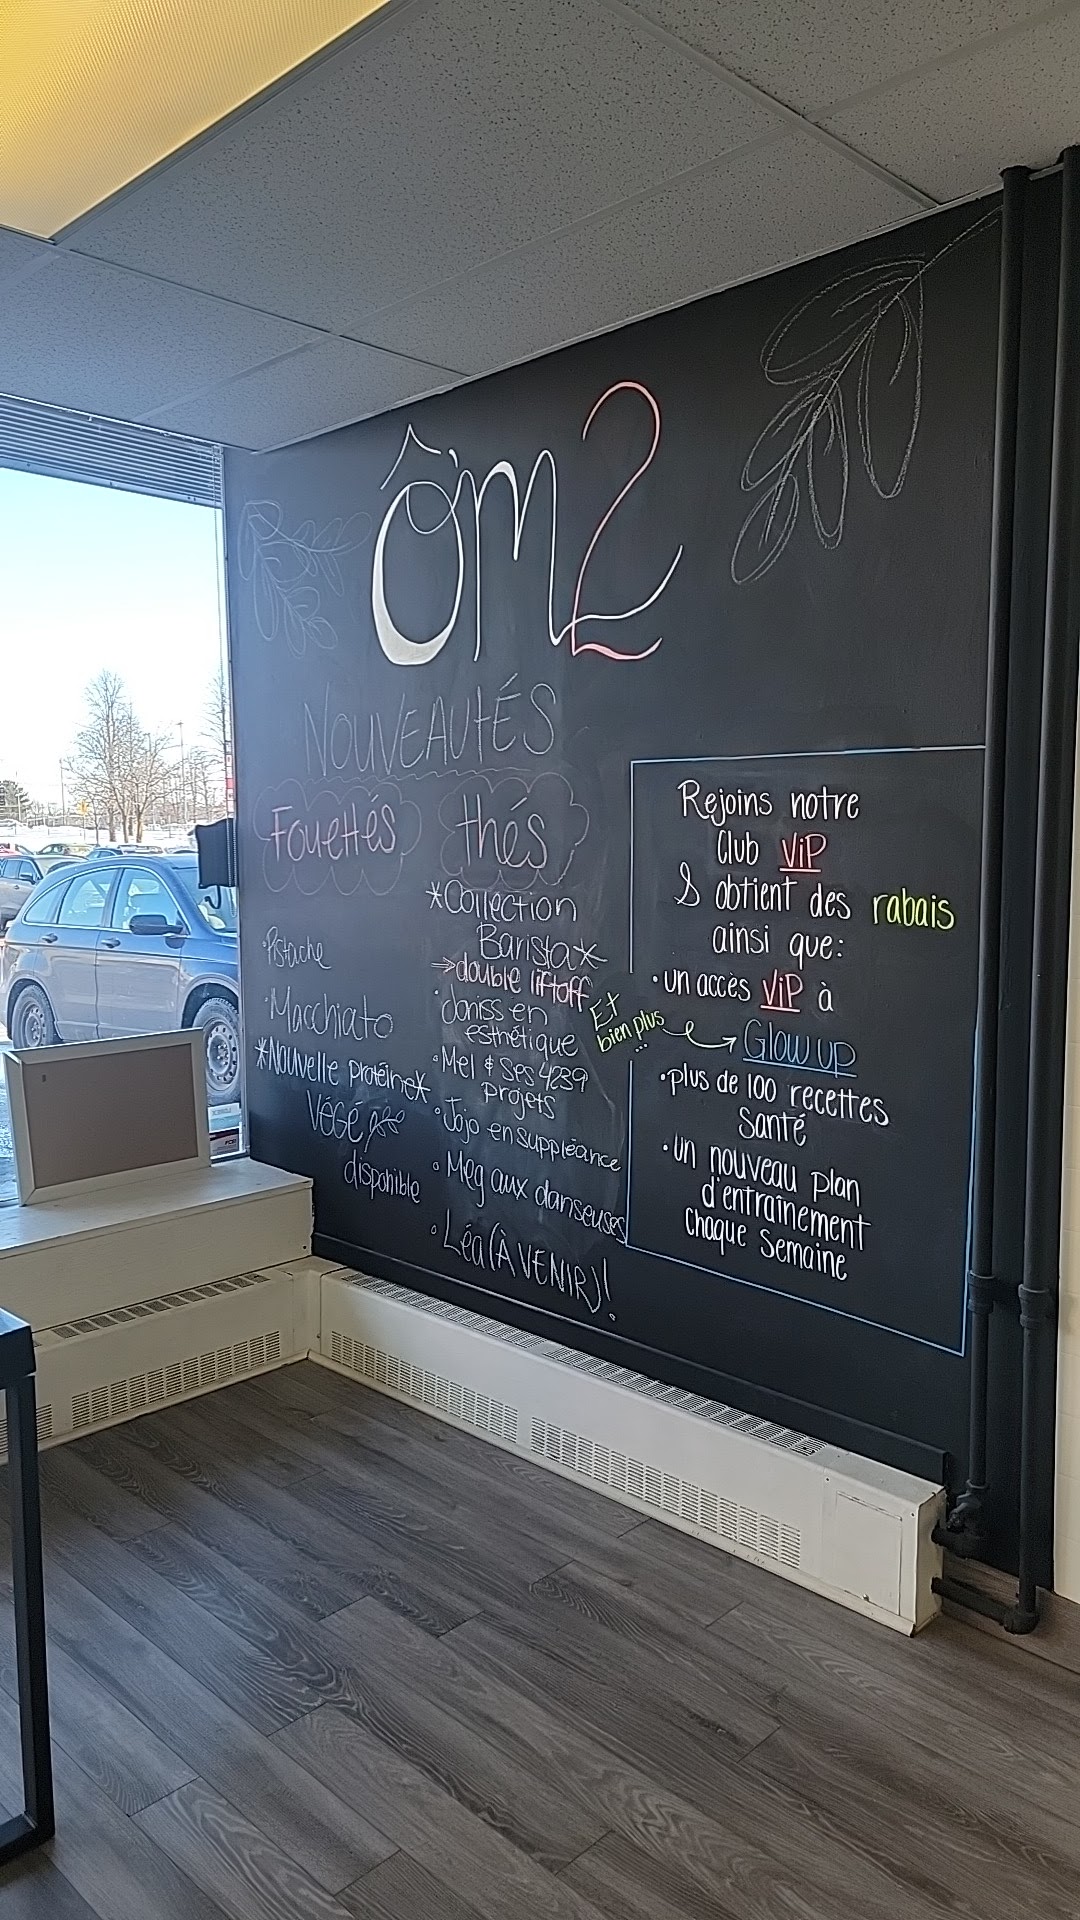 Ô'm2
NOUVEAUTÉS
Fouettés
Pistache
Macchiato
*Nouvelle protéine*
VÉGÉ
disponible
thés
*Collection
Barista*
→double liftoff
Joniss en
esthétique
Mel & Ses 4239
projets
Jojo en suppléance
Meg aux danseuses
Léa (À VENIR)!
Rejoins notre
Club ViP
& obtient des rabais
ainsi que:
• un accès ViP à
Glow up
Et
bien plus
...
• plus de 100 recettes
Santé
• un nouveau plan
d'entraînement
Chaque semaine